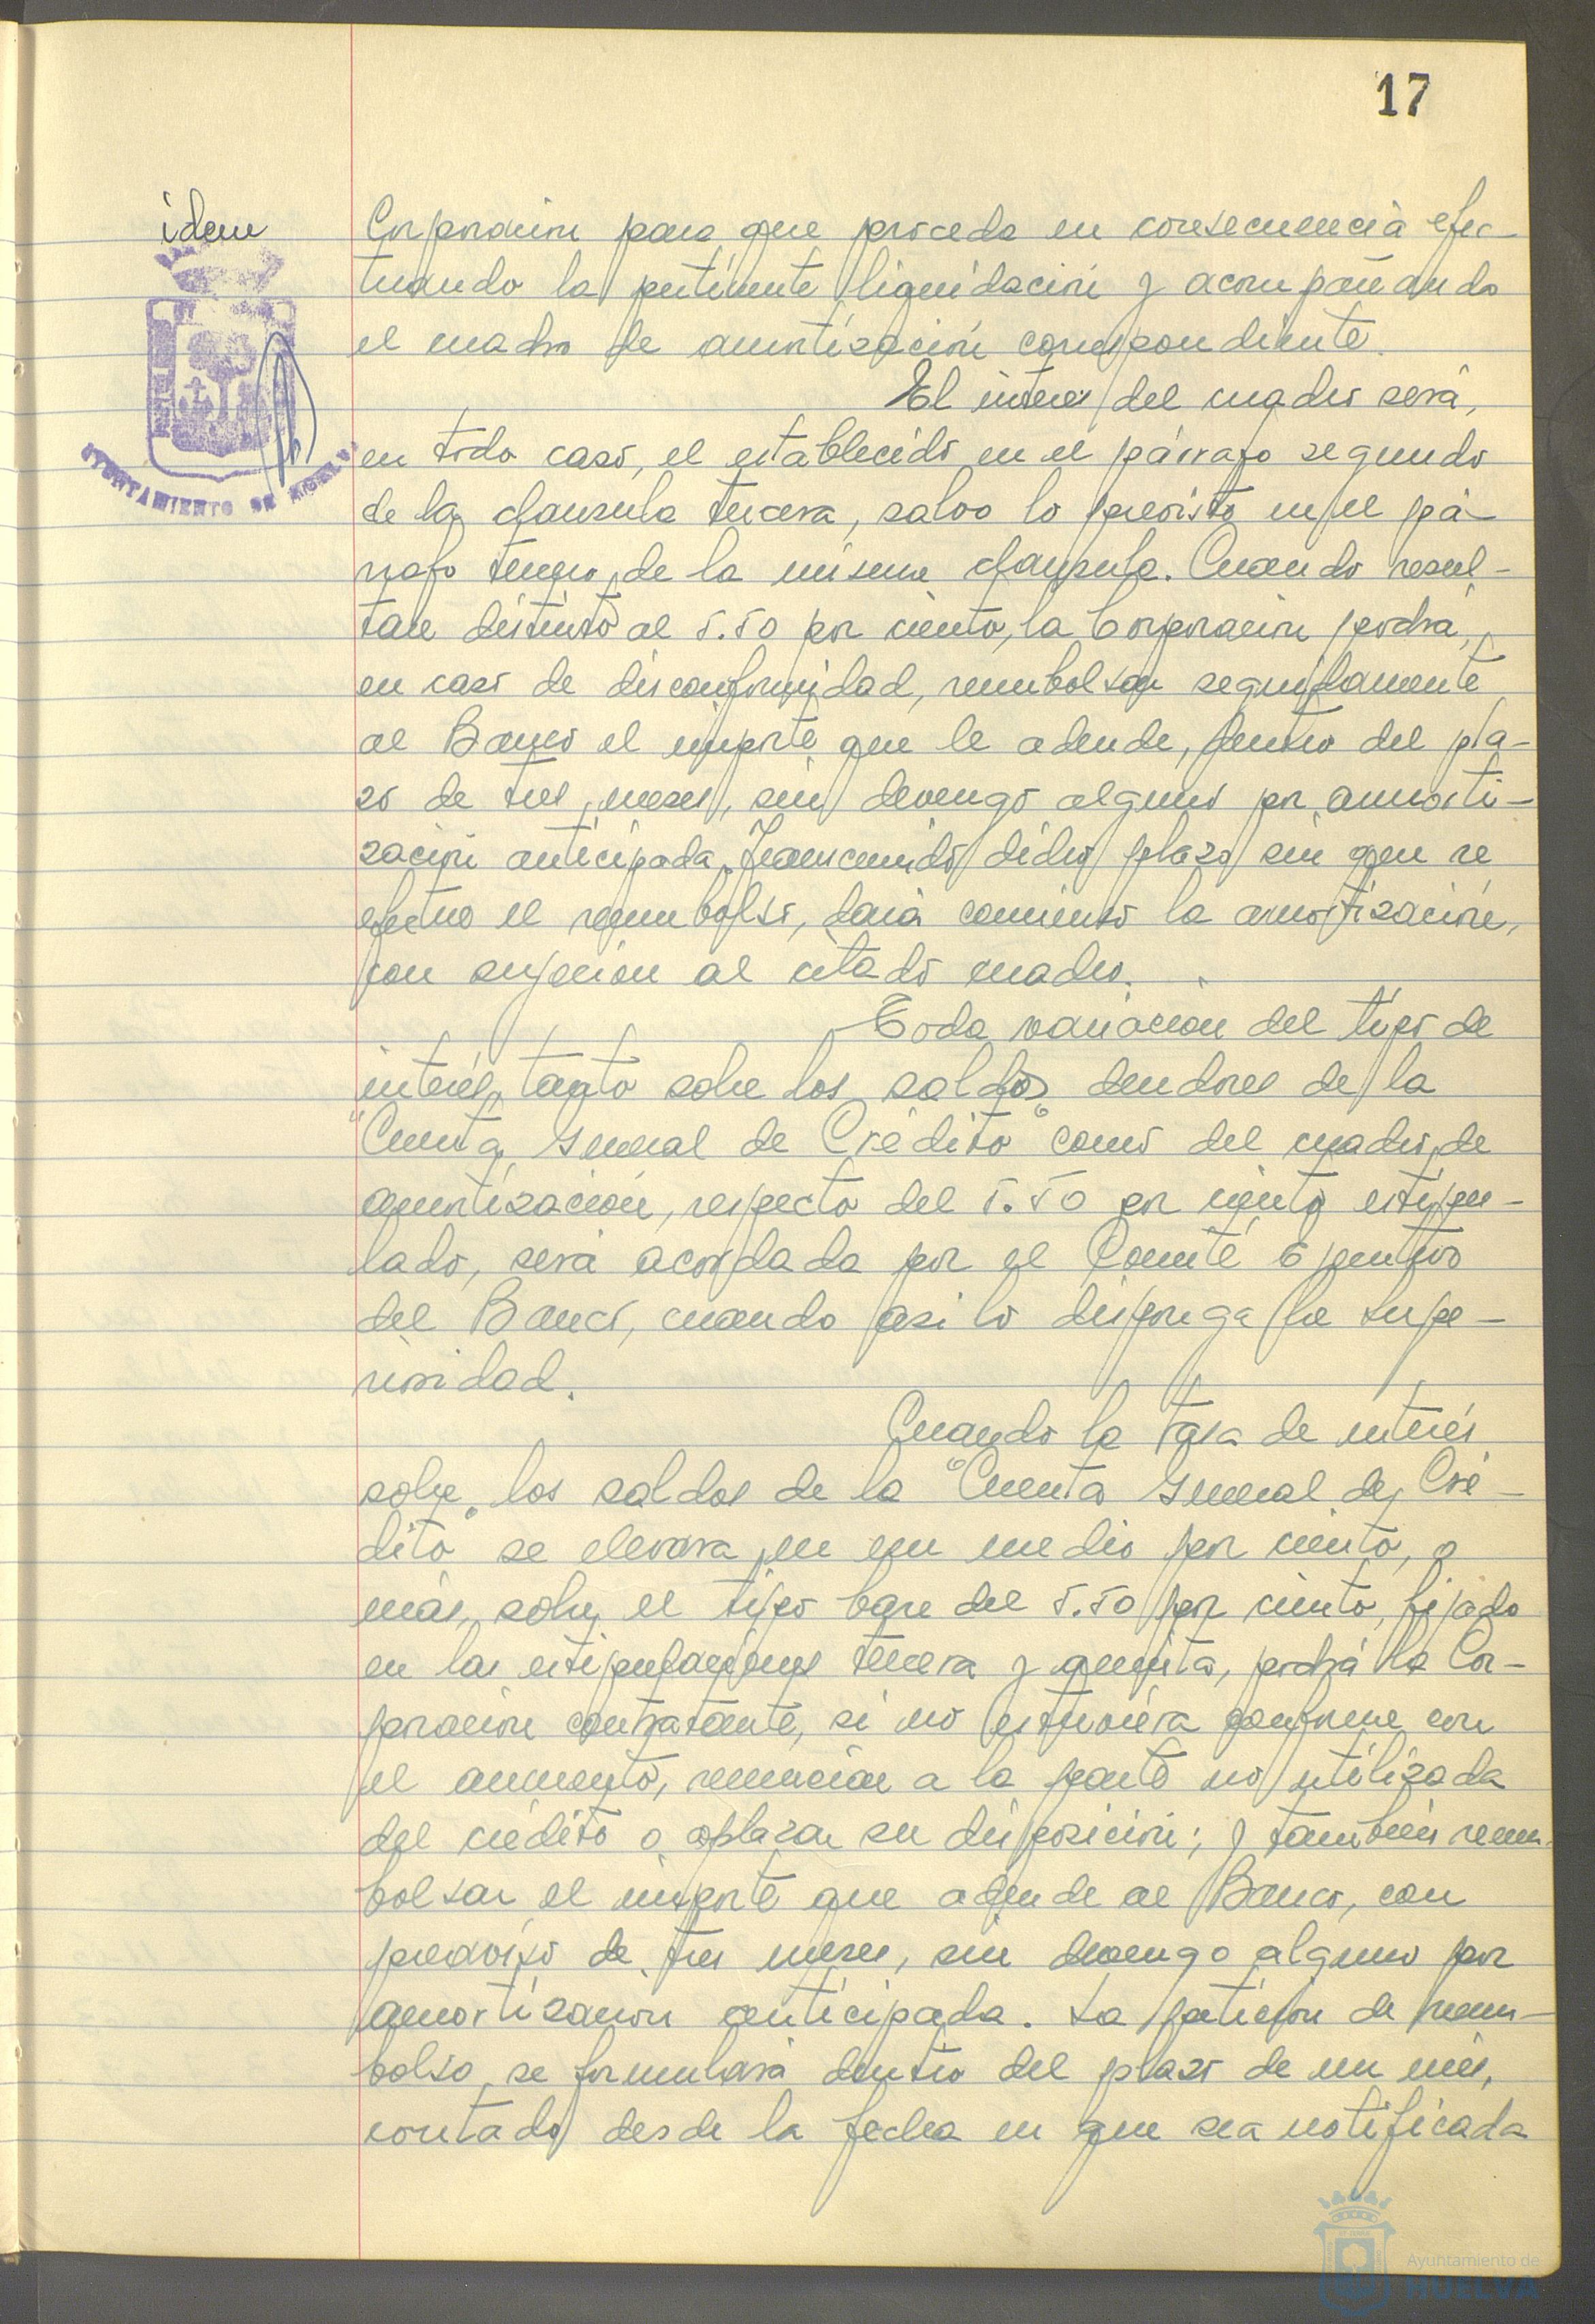 17
idem
Corporación para que proceda en consecuencia efec-
tuando la pertinente liquidación y acompañando
el cuadro de amortización correspondiente.
El interés del cuadro será,
en todo caso, el establecido en el párrafo segundo
de la clausula tercera, salvo lo previsto en el pá-
rrafo tercero de la misma clausula. Cuando resul-
tare distinto al 5.50 por ciento, la Corporación podrá,
en caso de disconformidad, reembolsar seguidamente
al Banco el importe que le adeude, dentro del pla-
zo de tres meses, sin devengo alguno por amorti-
zación anticipada. Transcurrido dicho plazo sin que se
efectue el reembolso, dará comienzo la amortización,
con sujeción al citado cuadro.
Toda variación del tipo de
interés, tanto sobre los saldos deudores de la
"Cuenta General de Crédito" como del cuadro de
amortización, respecto del 5.50 por ciento estipu-
lado, será acordada por el Comité Ejecutivo
del Banco, cuando asi lo disponga la supe-
rioridad.
Cuando la tasa de interés
sobre los saldos de la "Cuenta General de Cré-
dito" se elevara en un medio por ciento, o
más, sobre el tipo base del 5.50 por ciento, fijado
en las estipulaciones tercera y quinta, podrá la Cor-
poración contratante, si no estuviera conforme con
el aumento, renunciar a la parte no utilizada
del crédito o aplazar su disposición; y también reem-
bolsar el importe que adeude al Banco, con
preaviso de tres meses, sin devengo alguno por
amortización anticipada. La petición de reem-
bolso se formulará dentro del plazo de un mes,
contado desde la fecha en que sea notificada
AYUNTAMIENTO DE HUELVA
Ayuntamiento de
HUELVA